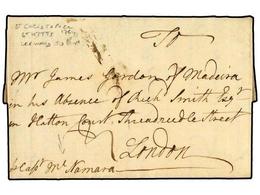 St Christopher
St KITTS 1764
Leeward
To
Mr James Gordon of Madeira
in his Absence of Rich Smith Esqr
in Hatton Court Threadneedle Street
London
Capt Mc Namara